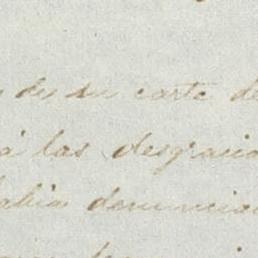 de su carta de
á las desgracia
habia denuncia